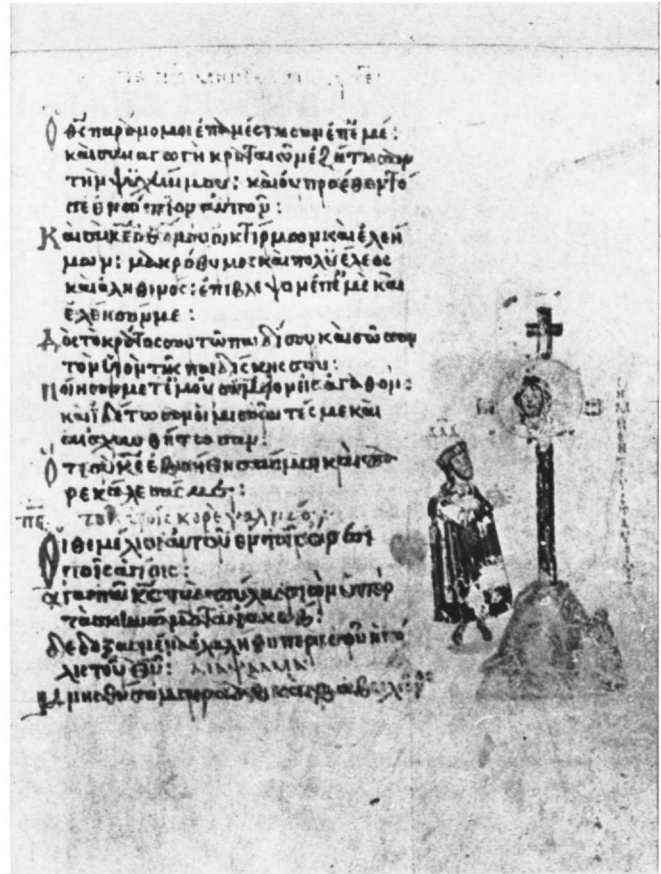 Ὁ θς παράνομοι ἐπανέστησαν ἐπ' ἐμέ:
καὶ συναγωγὴ κραταιῶν ἐζήτησαν
τὴν ψυχήν μου: καὶ οὐ προέθεντό
σε ἐνώπιον αὐτῶν:
Καὶ σὺ κε ὁ θς μου οἰκτίρμων καὶ ἐλεή
μων: μακρόθυμος καὶ πολυέλεος
καὶ ἀληθινός: ἐπίβλεψον ἐπ' ἐμὲ καὶ
ἐλέησόν με:
Δὸς τὸ κράτος σου τῶ παιδί σου καὶ σῶσον
τὸν υἱὸν τῆς παιδίσκης σου:
Ποίησον μετ' ἐμοῦ σημεῖον εἰς ἀγαθόν:
καὶ ἰδέτωσαν οἱ μισοῦντές με καὶ
αἰσχυνθήτωσαν:
Ὅτι σὺ κε ἐβοήθησάς μοι καὶ πα
ρεκάλεσάς με:
πς τοῖς υἱοῖς κορε ψαλμός
Οἱ θεμέλιοι αὐτοῦ ἐν τοῖς ὄρεσι
τοῖς ἁγίοις:
ἀγαπᾶ κς τὰς πύλας σιὼν ὑπὲρ
τὰ σκηνώματα ἰακώβ:
δεδοξασμένα ἐλαλήθη περὶ σοῦ ἡ πό
λις τοῦ θυ: διάψαλμα
Μνησθήσομαι ραὰβ καὶ